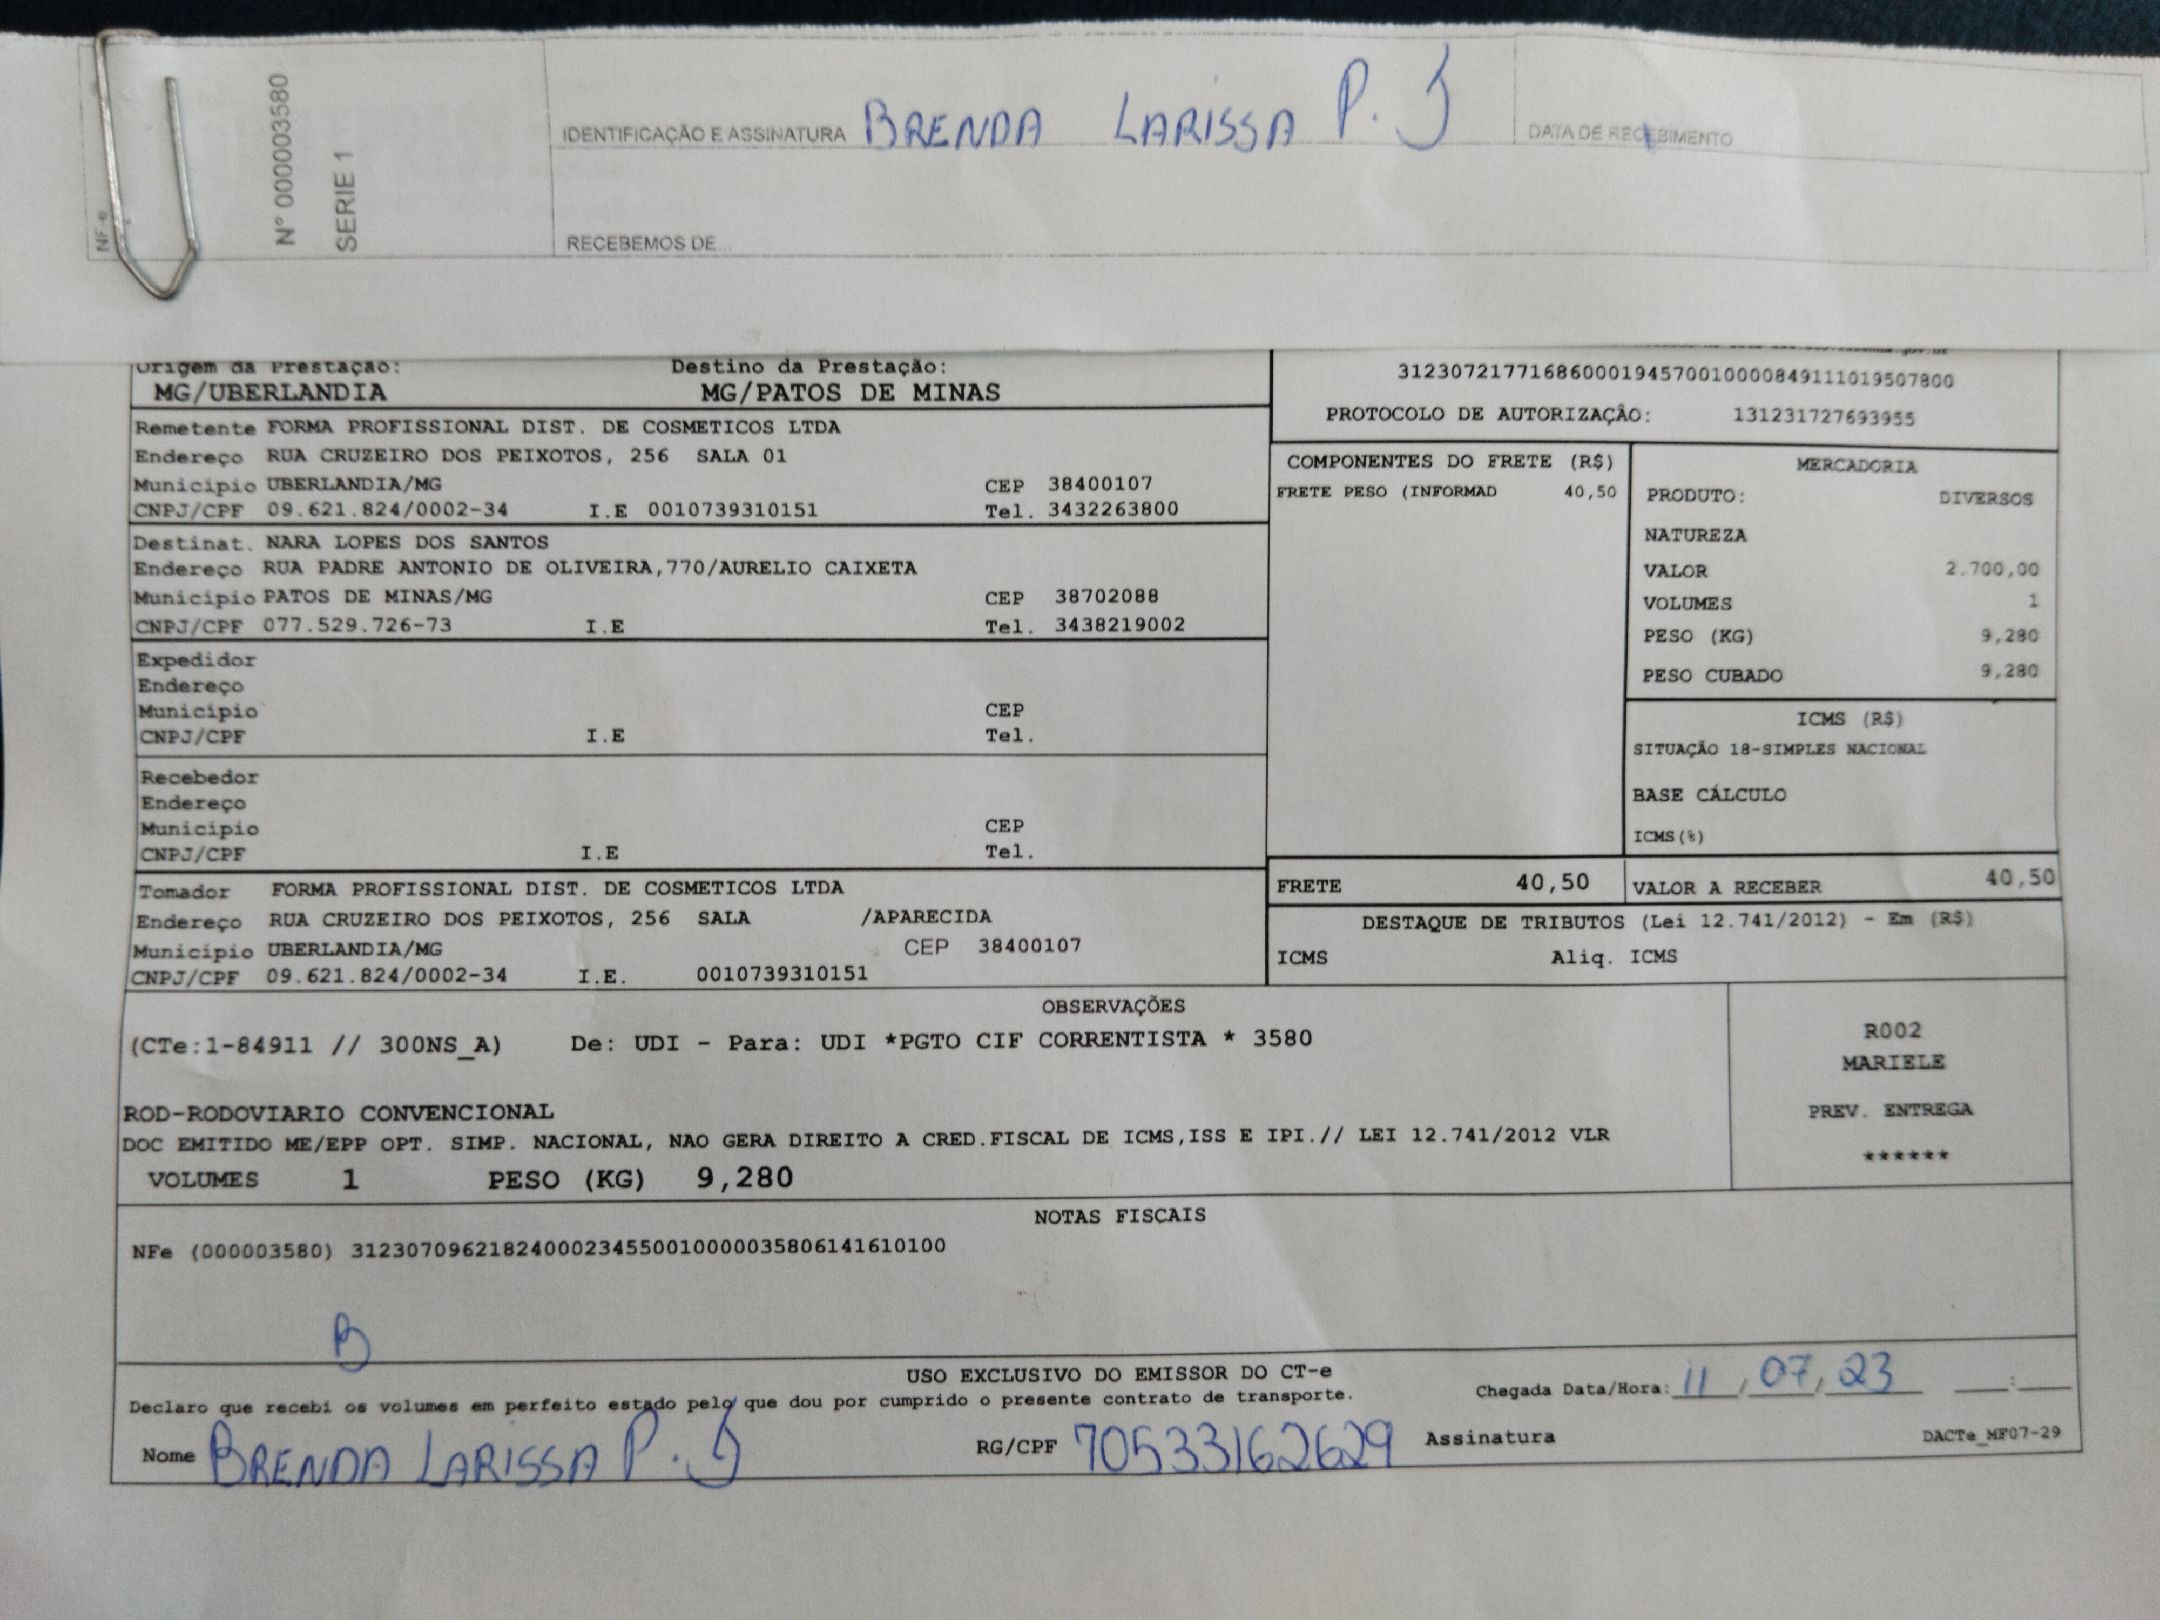 NF-e
N° 000003580
SERIE 1
IDENTIFICAÇÃO E ASSINATURA BRENDA LARISSA P. J
DATA DE RECEBIMENTO
RECEBEMOS DE...
Origem da Prestação: Destino da Prestação:
MG/UBERLANDIA MG/PATOS DE MINAS
31230721771686000194570010000849111019507800
PROTOCOLO DE AUTORIZAÇÃO: 131231727693955
Remetente FORMA PROFISSIONAL DIST. DE COSMETICOS LTDA
Endereço RUA CRUZEIRO DOS PEIXOTOS, 256 SALA 01
Município UBERLANDIA/MG CEP 38400107
CNPJ/CPF 09.621.824/0002-34 I.E 0010739310151 Tel. 3432263800
Destinat. NARA LOPES DOS SANTOS
Endereço RUA PADRE ANTONIO DE OLIVEIRA,770/AURELIO CAIXETA
Município PATOS DE MINAS/MG CEP 38702088
CNPJ/CPF 077.529.726-73 I.E Tel. 3438219002
Expedidor
Endereço
Município CEP
CNPJ/CPF I.E Tel.
Recebedor
Endereço
Município CEP
CNPJ/CPF I.E Tel.
Tomador FORMA PROFISSIONAL DIST. DE COSMETICOS LTDA
Endereço RUA CRUZEIRO DOS PEIXOTOS, 256 SALA /APARECIDA
Município UBERLANDIA/MG CEP 38400107
CNPJ/CPF 09.621.824/0002-34 I.E. 0010739310151
COMPONENTES DO FRETE (R$)
FRETE PESO (INFORMAD 40,50
MERCADORIA
PRODUTO: DIVERSOS
NATUREZA
VALOR 2.700,00
VOLUMES 1
PESO (KG) 9,280
PESO CUBADO 9,280
ICMS (R$)
SITUAÇÃO 18-SIMPLES NACIONAL
BASE CÁLCULO
ICMS(%)
FRETE 40,50 VALOR A RECEBER 40,50
DESTAQUE DE TRIBUTOS (Lei 12.741/2012) - Em (R$)
ICMS Aliq. ICMS
OBSERVAÇÕES
(CTe:1-84911 // 300NS_A) De: UDI - Para: UDI *PGTO CIF CORRENTISTA * 3580
ROD-RODOVIARIO CONVENCIONAL
DOC EMITIDO ME/EPP OPT. SIMP. NACIONAL, NAO GERA DIREITO A CRED.FISCAL DE ICMS,ISS E IPI.// LEI 12.741/2012 VLR
VOLUMES 1 PESO (KG) 9,280
R002
MARIELE
PREV. ENTREGA
******
NOTAS FISCAIS
NFe (000003580) 31230709621824000234550010000035806141610100
B
USO EXCLUSIVO DO EMISSOR DO CT-e
Declaro que recebi os volumes em perfeito estado pelo que dou por cumprido o presente contrato de transporte.
Chegada Data/Hora: 11/07/23 __:__
Nome BRENDA LARISSA P. J RG/CPF 70533162629 Assinatura DACTe_MF07-29